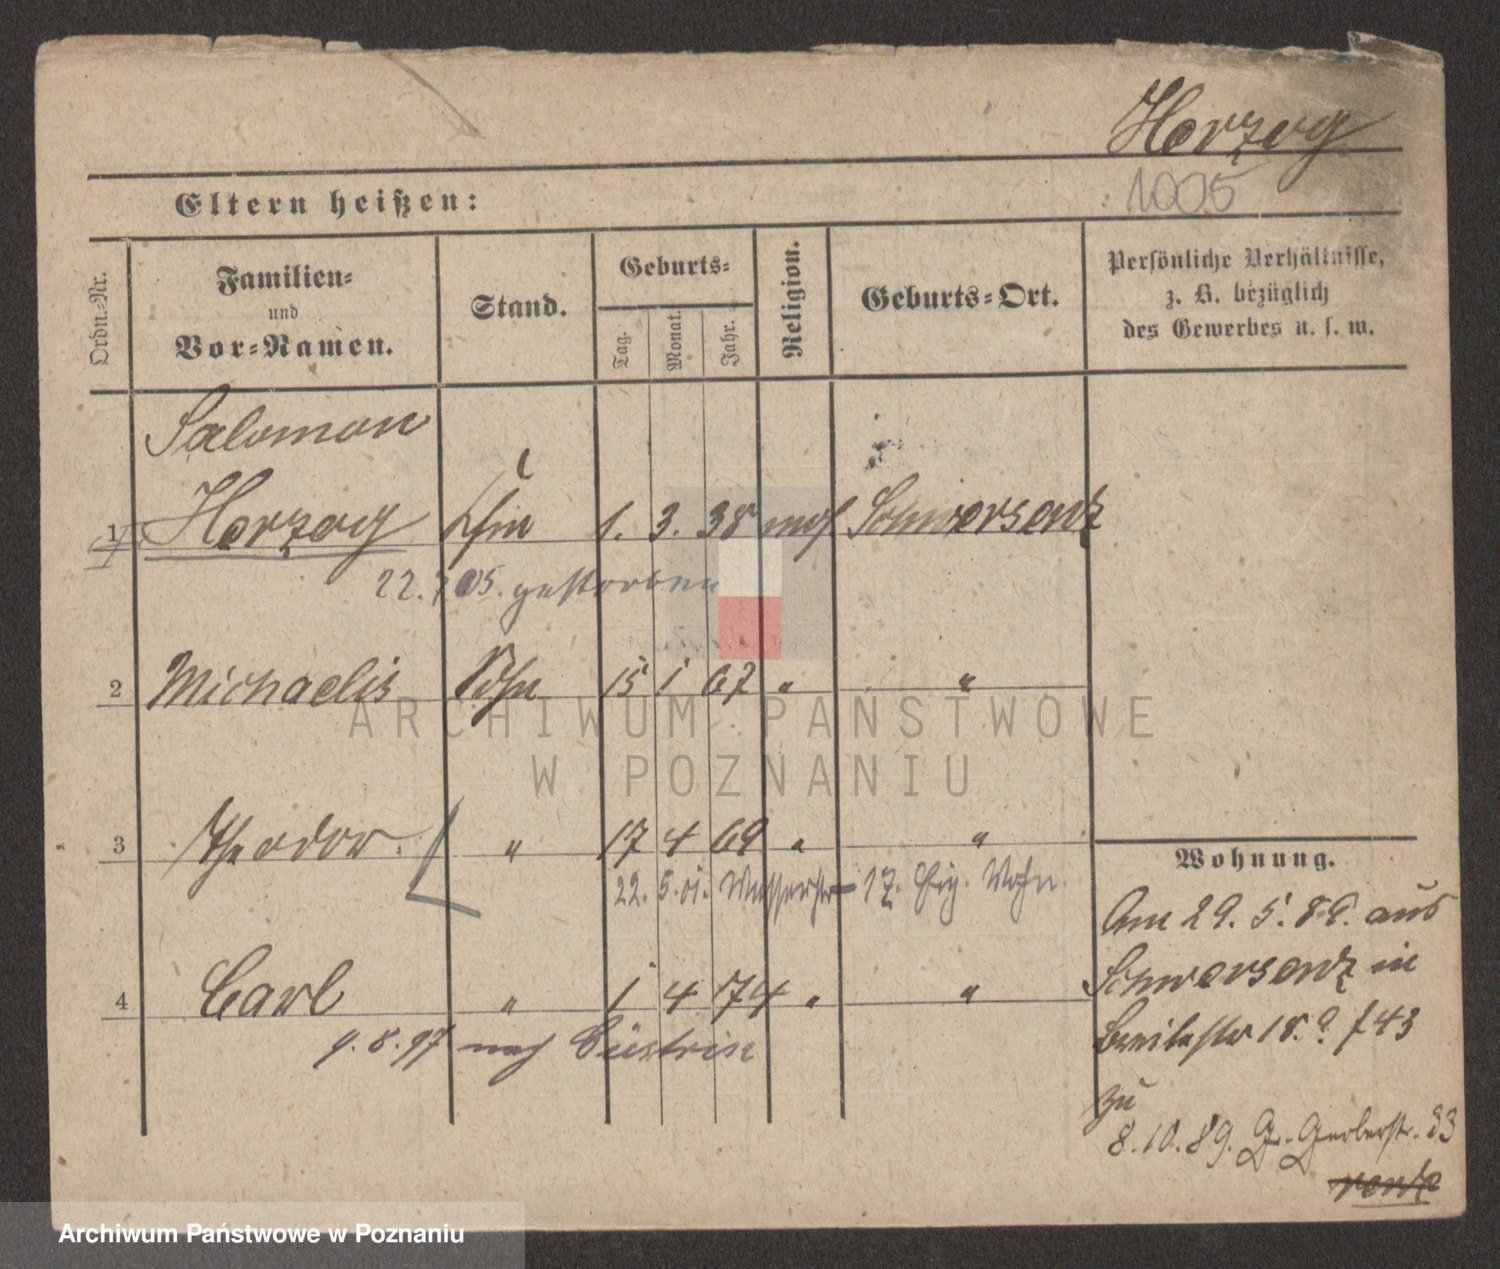 Herzog
1005
Eltern heißen:
Ordn.-Nr.
Familien-
und
Vor-Namen.
Stand.
Geburts-
Tag.
Monat.
Jahr.
Religion.
Geburts-Ort.
Persönliche Verhältnisse,
z. B. bezüglich
des Gewerbes u. s. w.
Salomon
1 Herzog Kfm 1. 3. 38 mos Schwersenz
22. 7 05. gestorben
2 Michaelis Sohn 15 1 67 " "
ARCHIWUM PAŃSTWOWE
W POZNANIU
3 Theodor " 17 4 69 " "
22. 5. 01. Wasserstr 17. Wohn
4 Carl " 1 4 74 " "
9. 8. 97 nach Cüstrin
Wohnung.
Am 29. 5. 89. aus
Schwersenz in
Breitestr 18.
zu
8. 10. 89. Gr. Gerberstr. 33
Archiwum Państwowe w Poznaniu